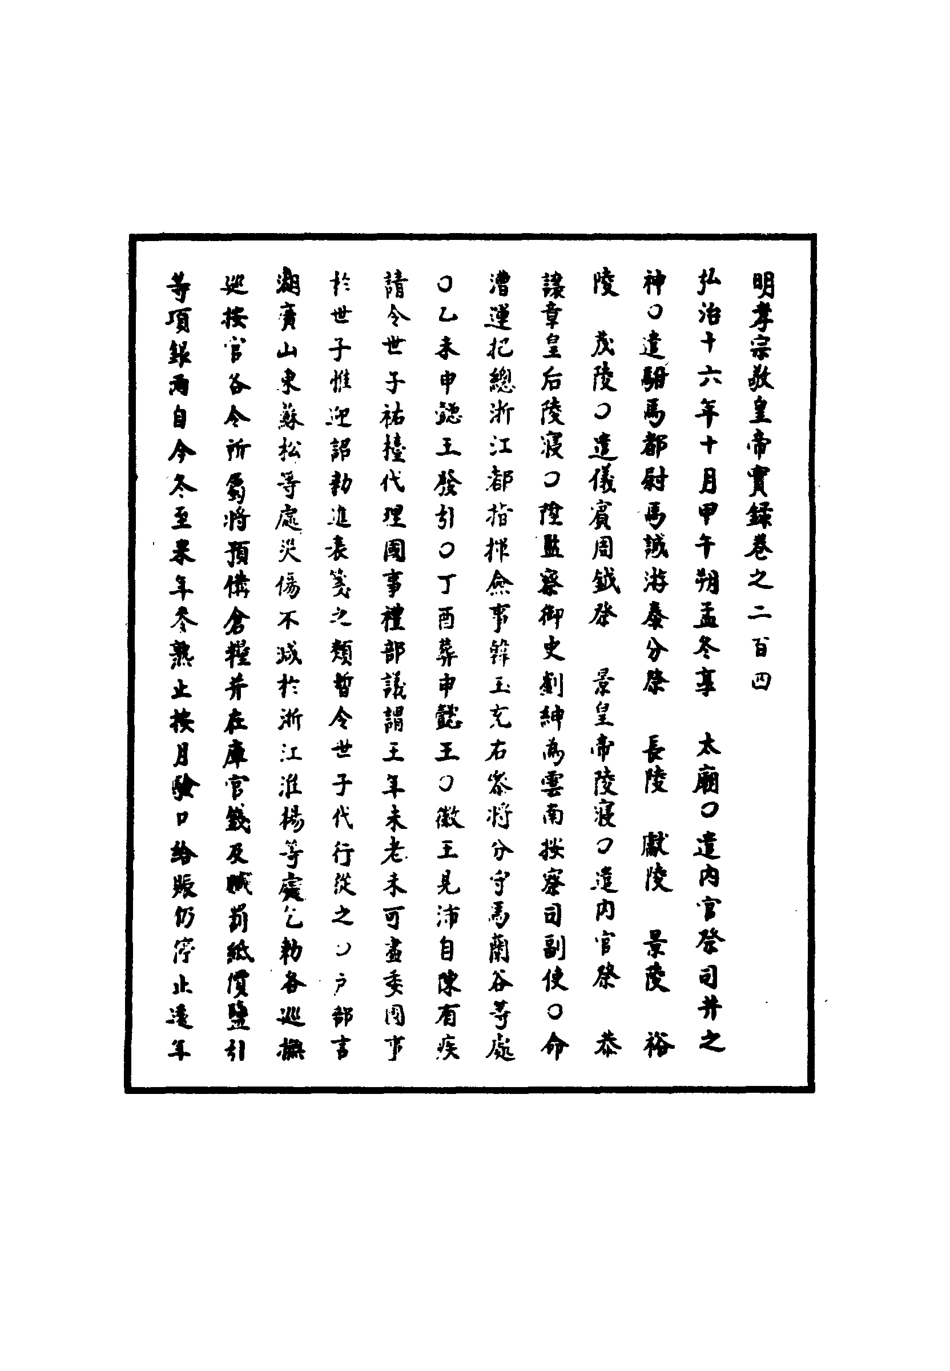 明孝宗敬皇帝實錄卷之二百四
弘治十六年十月甲午朔孟冬享　太廟○遣內官祭司井之
神○遣駙馬都尉馬誠游泰分祭　長陵　獻陵　景陵　裕
陵　茂陵○遣儀賓周鉞祭　景皇帝陵寢○遣內官祭　恭
讓章皇后陵寢○陞監察御史劉紳為雲南按察司副使○命
漕運把總浙江都指揮僉事韓玉充右叅將分守馬蘭谷等處
○乙未申懿王發引○丁酉葬申懿王○徽王見沛自陳有疾
請令世子祐檯代理國事禮部議謂王年未老未可盡委國事
於世子惟迎詔勑進表箋之類暫令世子代行從之○戶部言
湖廣山東蘇松等處災傷不減於浙江淮楊等處乞勑各巡撫
巡按官各令所屬將預備倉糧并在庫官錢及贓罰紙價鹽引
等項銀兩自今冬至來年冬熟止按月驗口給賑仍停止遠年